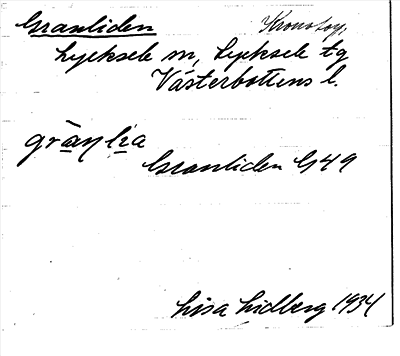 Granliden Kronotorp,
Lycksele sn, Lycksele tg
Västerbottens l.
gràn lìa
Granliden G49
Lisa Lidberg 1934